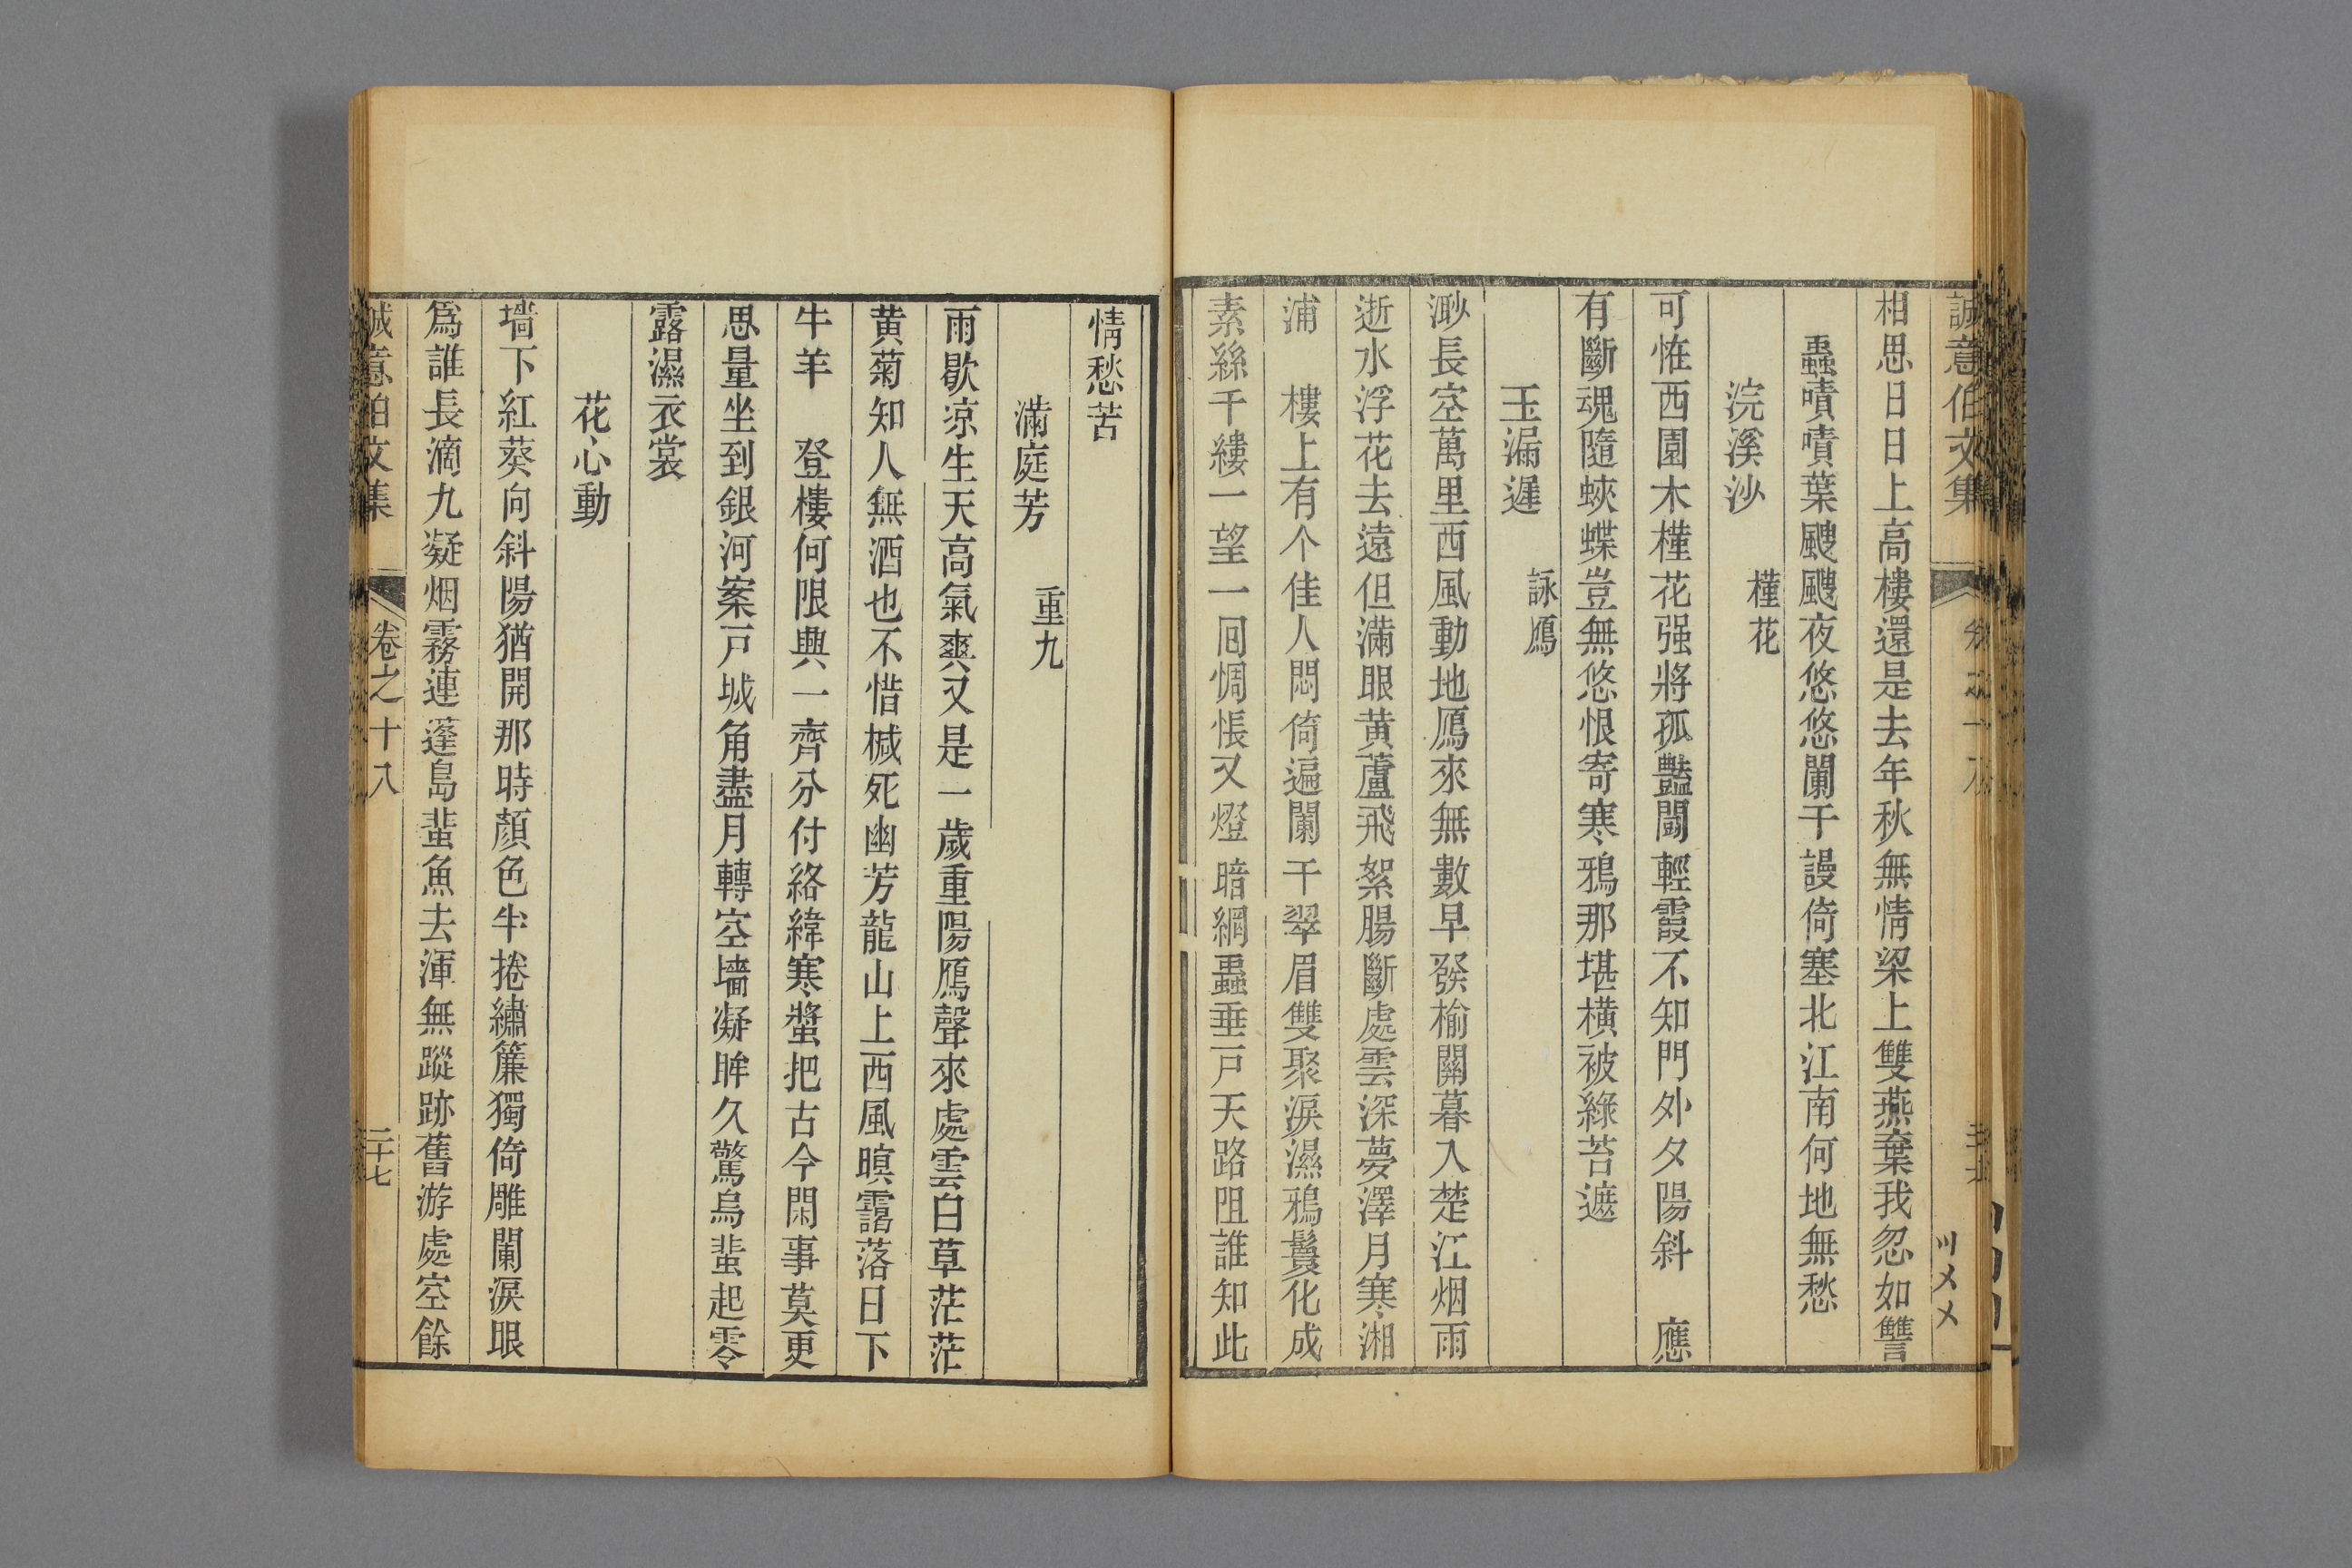 誠意伯文集
相思日日上高樓還是去年秋無情梁上雙燕棄我忽如讐
蟲嘖嘖葉颼颼夜悠悠闌干謾倚塞北江南何地無愁
浣溪沙 槿花
可恠西園木槿花强將孤豔鬬輕霞不知門外夕陽斜 應
有斷魂隨蛺蝶豈無悠恨寄寒鴉那堪橫被綠苔遮
玉漏遲 詠鴈
渺長空萬里西風動地鴈來無數早發榆關暮入楚江烟雨
逝水浮花去遠但滿眼黄蘆飛絮腸斷處雲深夢澤月寒湘
浦 樓上有个佳人悶倚遍闌干翠眉雙聚淚濕鴉鬟化成
素絲千縷一望一回惆悵又燈暗網蟲垂戶天路阻誰知此
情愁苦
滿庭芳 重九
雨歇凉生天高氣爽又是一歲重陽鴈聲來處雲白草茫茫
黄菊知人無酒也不惜槭死幽芳龍山上西風暝靄落日下
牛羊 登樓何限興一齊分付絡緯寒螿把古今閑事莫更
思量坐到銀河案戶城角盡月轉空墻凝眸久驚烏蜚起零
露濕衣裳
花心動
墻下紅葵向斜陽猶開那時顏色半捲繡簾獨倚雕闌淚眼
爲誰長滴九凝烟霧連蓬島蜚魚去渾無蹤跡舊游處空餘
誠意伯文集 卷之十八 二十七